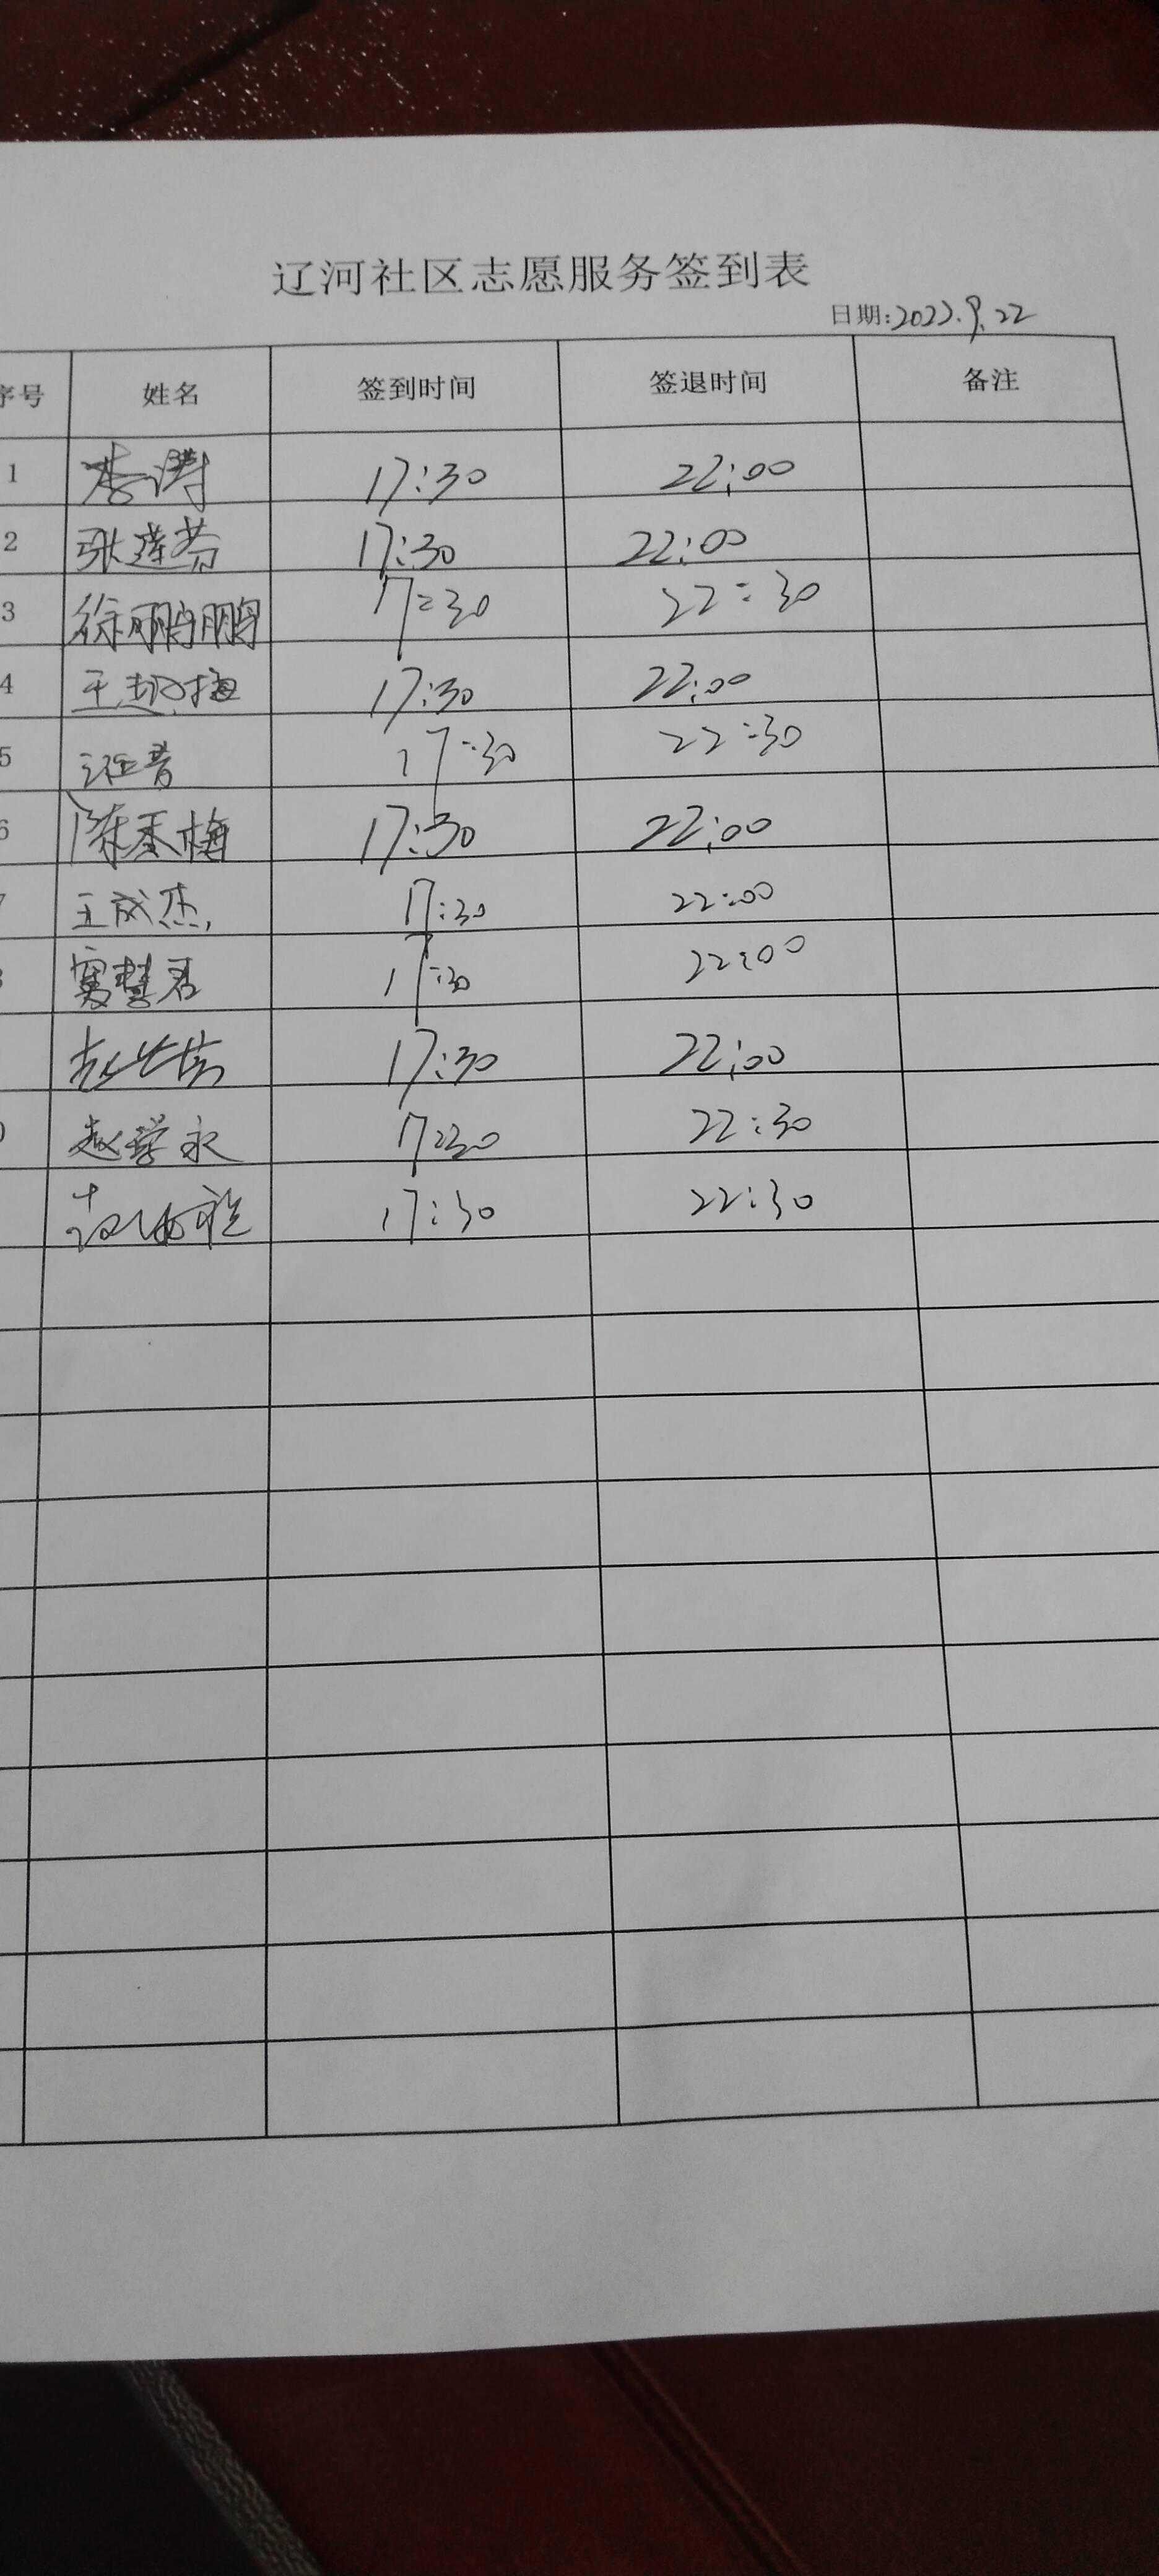 辽河社区志愿服务签到表
日期:2022.9.22
序号 姓名 签到时间 签退时间 备注
1 李涛 17:30 22:00
2 张莲芬 17:30 22:00
3 徐鹏鹏 17:30 22:30
4 王赵梅 17:30 22:00
5 17:30 22:30
6 陈秀梅 17:30 22:00
王成杰 17:30 22:00
窦慧君 17:30 22:00
17:30 22:00
赵学永 17:30 22:30
17:30 22:30